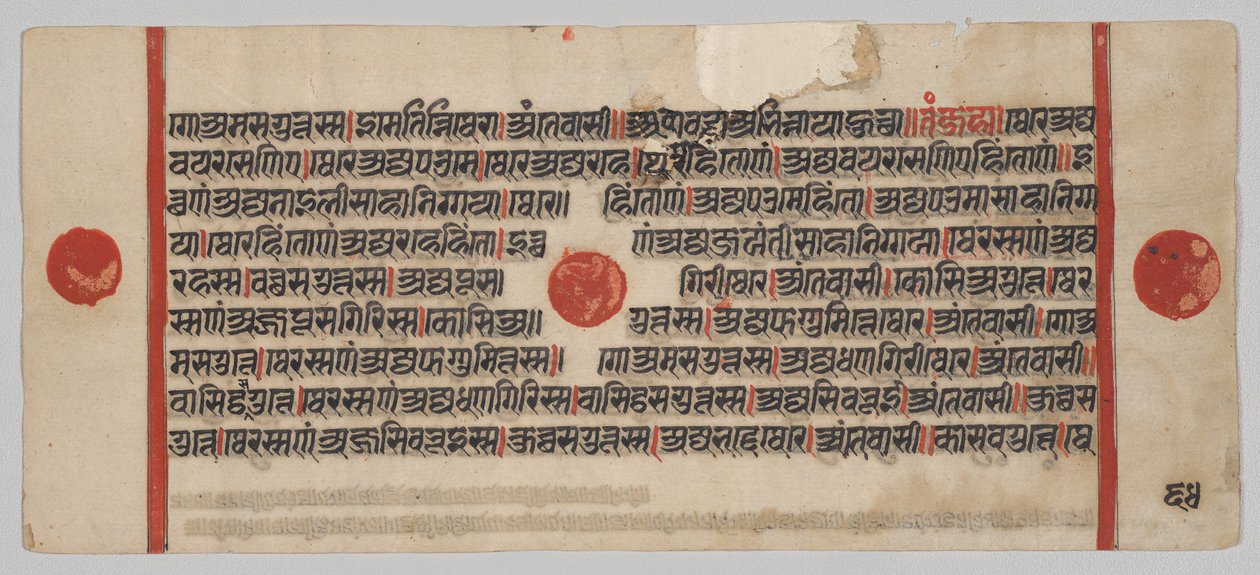 गोअमसगुत्तस्स।इमे तिन्नि थेरा।अंतेवासी॥अहावच्चा अभिन्नाया हुत्था॥तंजहा॥थेरे अज्ज
वयरसेणिए।थेरे अज्जपउमे।थेरे अज्जरहे।थेरेहिंतो णं।अज्जवयरसेणिएहिंतो णं॥इ
त्थणं अज्जनाइली साहा निग्गया।थेरे॥ हिंतो णं।अज्जपउमेहिंतो।अज्जपउमा साहा निग्ग
या।थेरेहिंतो णं अज्जरहेहिंतो।इत्थ णं अज्जजयंती साहा निग्गया।थेरस्स णं अज्ज
रहस्स।वच्छसगुत्तस्स।अज्जपूस। गिरी थेरे।अंतेवासी।कोसिअगुत्ते।थेर
स्स णं अज्जपूसगिरिस्स।कोसिअ॥ गुत्तस्स।अज्जफग्गुमित्ते थेरे।अंतेवासी।गोअ
मसगुत्ते।थेरस्स णं अज्जफग्गुमित्तस्स॥ गोअमसगुत्तस्स।अज्जधणगिरी थेरे।अंतेवासी॥
वासिट्ठसगुत्ते।थेरस्स णं अज्जधणगिरिस्स।वासिट्ठसगुत्तस्स।अज्जसिवभूई।अंतेवासी॥कुच्छस
गुत्ते।थेरस्स णं अज्जसिवभूइस्स।कुच्छसगुत्तस्स।अज्जभद्दे थेरे।अंतेवासी॥कासवगुत्ते।थे
६५